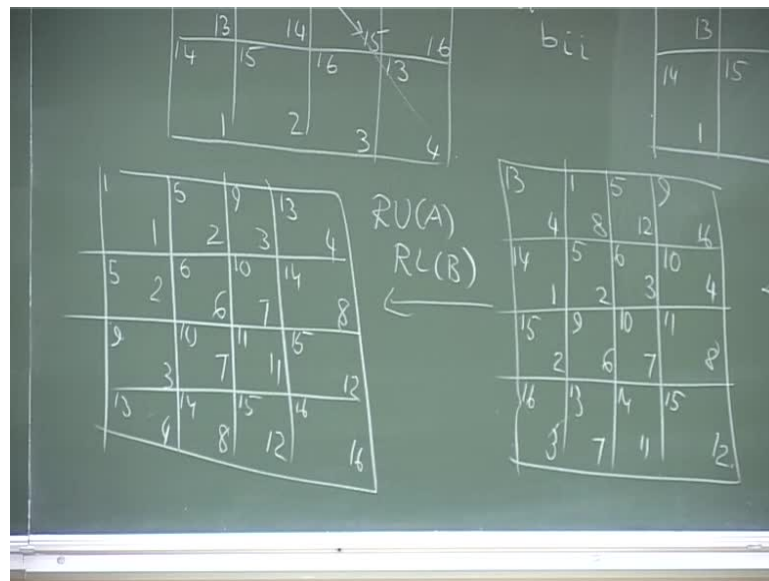 13 14 15 16
14 15 16 13
1 2 3 4
bii
13
14 15
1
1 5 9 13
1 2 3 4
5 6 10 14
2 6 7 8
9 10 11 15
3 7 11 12
13 14 15 16
4 8 12 16
RU(A)
RL(B)
13 1 5 9
4 8 12 16
14 5 6 10
1 2 3 4
15 9 10 11
2 6 7 8
16 13 14 15
3 7 11 12